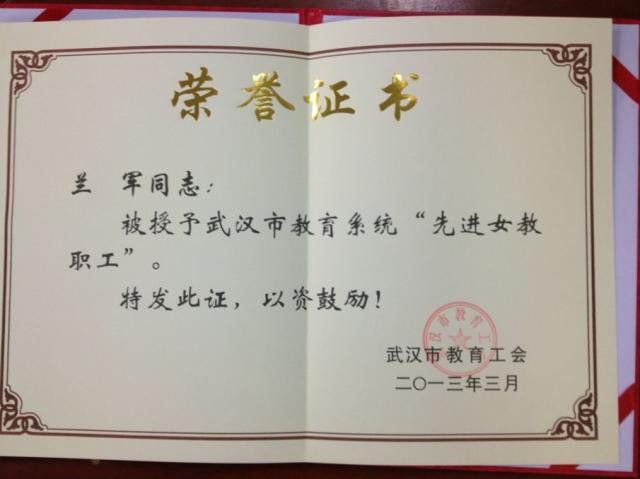 荣誉证书
兰 军同志：
被授予武汉市教育系统“先进女教
职工”。
特发此证，以资鼓励！
武汉市教育工会
武汉市教育工会
二〇一三年三月